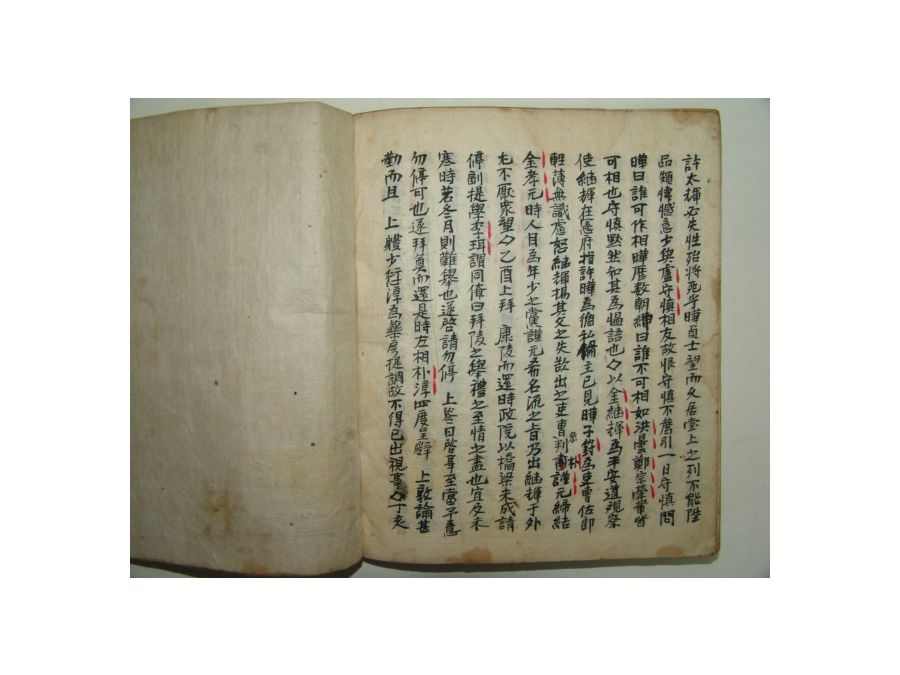 許太輝必失性殆將死乎曄負士望而久居堂上之列不能陞
品頗懷憾意少與盧守慎相友故恨守慎不薦引一日守慎問
曄曰誰可作相曄歷數朝紳曰誰不可相如洪曇鄭宗榮輩皆
可相也守慎默然知其爲慍語也〻以金継輝爲平安道觀察
使継輝在憲府指許曄爲循私論主已見曄子篈爲吏曹佐郎
輕薄無識處怒継輝揚其父之失欲出之吏曹參判朴謹元締結
金孝元時人目爲年少之黨謹元希名流之旨乃出継輝于外
尤不厭衆望〻乙酉上拜 康陵而還時政院以橋梁未成請
停副提學李珥謂同僚曰拜陵之擧禮之至情之盡也宜及未
寒時若冬月則難擧也遂啓請勿停 上答曰啓事至當予意
勿停可也遂拜奠而還是時左相朴淳四度呈辭 上敦諭甚
勤而且 上軆少愆淳爲藥房提調故不得已出視事〻丁亥